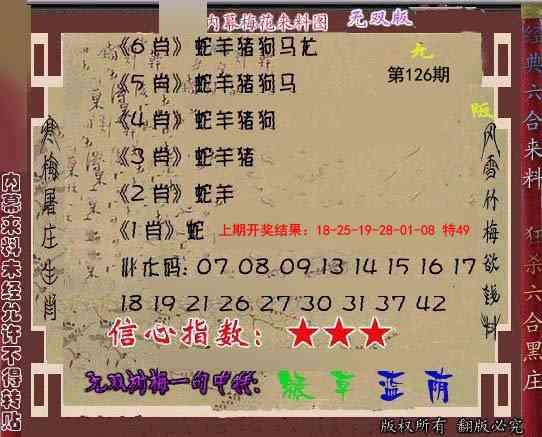 内幕梅花来料图 无双版
《6肖》蛇羊猪狗马龙
无
《5肖》蛇羊猪狗马
第126期
《4肖》蛇羊猪狗
版
《3肖》蛇羊猪
《2肖》蛇羊
《1肖》蛇 上期开奖结果：18-25-19-28-01-08 特49
07 08 09 13 14 15 16 17
18 19 21 26 27 30 31 37 42
信心指数：★★★
无双 梅一句中特：绿草蓝荫
寒梅屠庄生肖
风雪竹梅欲钱料
内幕来料未经允许不得转贴
经典六合来料 狂杀六合黑庄
版权所有 翻版必究